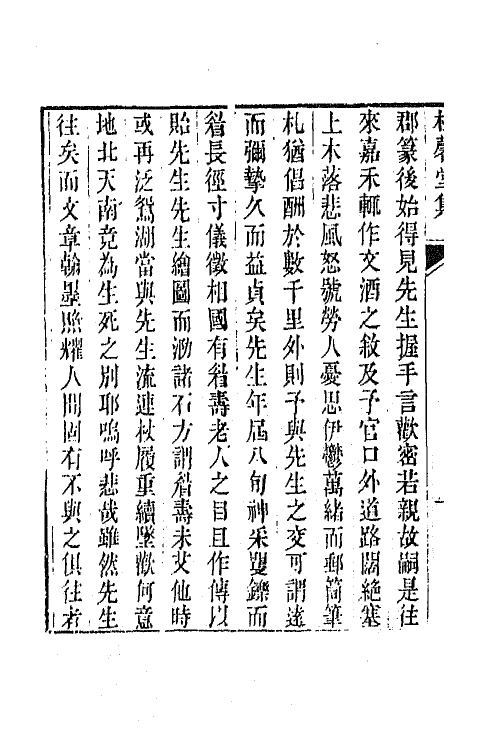 桂馨堂集
郡篆後始得見先生握手言歡密若親故嗣是往
來嘉禾輒作文酒之敘及予官口外道路闊絶塞
上木落悲風怒號勞人憂思伊鬱萬緒而郵筒筆
札猶倡酬於數千里外則予與先生之交可謂遠
而彌摯久而益貞矣先生年屆八旬神采矍鑠而
眉長徑寸儀徵相國有眉壽老人之目且作傳以
貽先生先生繪圖而泐諸石方謂眉壽未艾他時
或再泛鴛湖當與先生流連杖履重續墜歡何意
地北天南竟為生死之別耶嗚呼悲哉雖然先生
往矣而文章翰墨照耀人間固有不與之俱往者